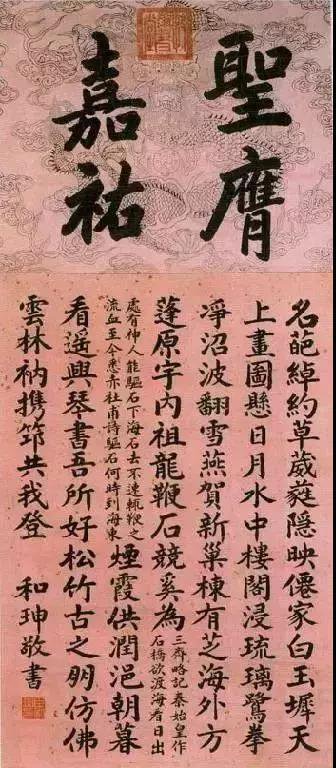 聖膺
嘉祐
名葩綽約草葳蕤隱映僊家白玉墀天
上畫圖懸日月水中樓閣浸琉璃鷺拳
凈沼波翻雪燕賀新巢棟有芝海外方
蓬原宇內祖龍鞭石競奚為
三齊略記秦始皇作
石橋欲渡海看日出
處有神人能驅石下海石去不速輒鞭之
流血至今悉赤杜甫詩驅石何時到海東
煙霞供潤浥朝暮
看遙興琴書吾所好松竹古之朋仿佛
雲林衲攜筇共我登
和珅敬書